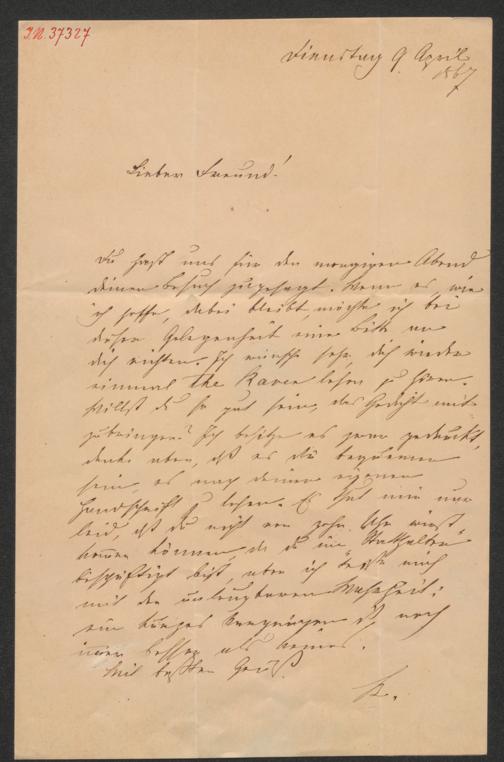 I.N. 37327
Dienstag 9 April
1867
Lieber Freund!
Du hast uns für den morgigen Abend
deinen Besuch zugesagt. Wenn es, wie
ich hoffe, dabei bleibt, möchte ich bei
dieser Gelegenheit eine Bitte an
dich richten. Ich wünsche sehr, dich wieder
einmal the Raven lesen zu hören.
Willst du so gut sein, das Gedicht mit-
zubringen? Ich besitze es zwar gedruckt,
denke aber, daß es dir bequemer
sein, es nach deiner eigenen
Handschrift zu lesen. Es thut mir nur
leid, daß du nicht vor zehn Uhr wirst
kommen können, da du im
beschäftigt bist, aber ich tröste mich
mit der unläugbaren Wahrheit:
ein kurzes Vergnügen ist noch
immer besser als keines.
Mit bestem Gruß
K.